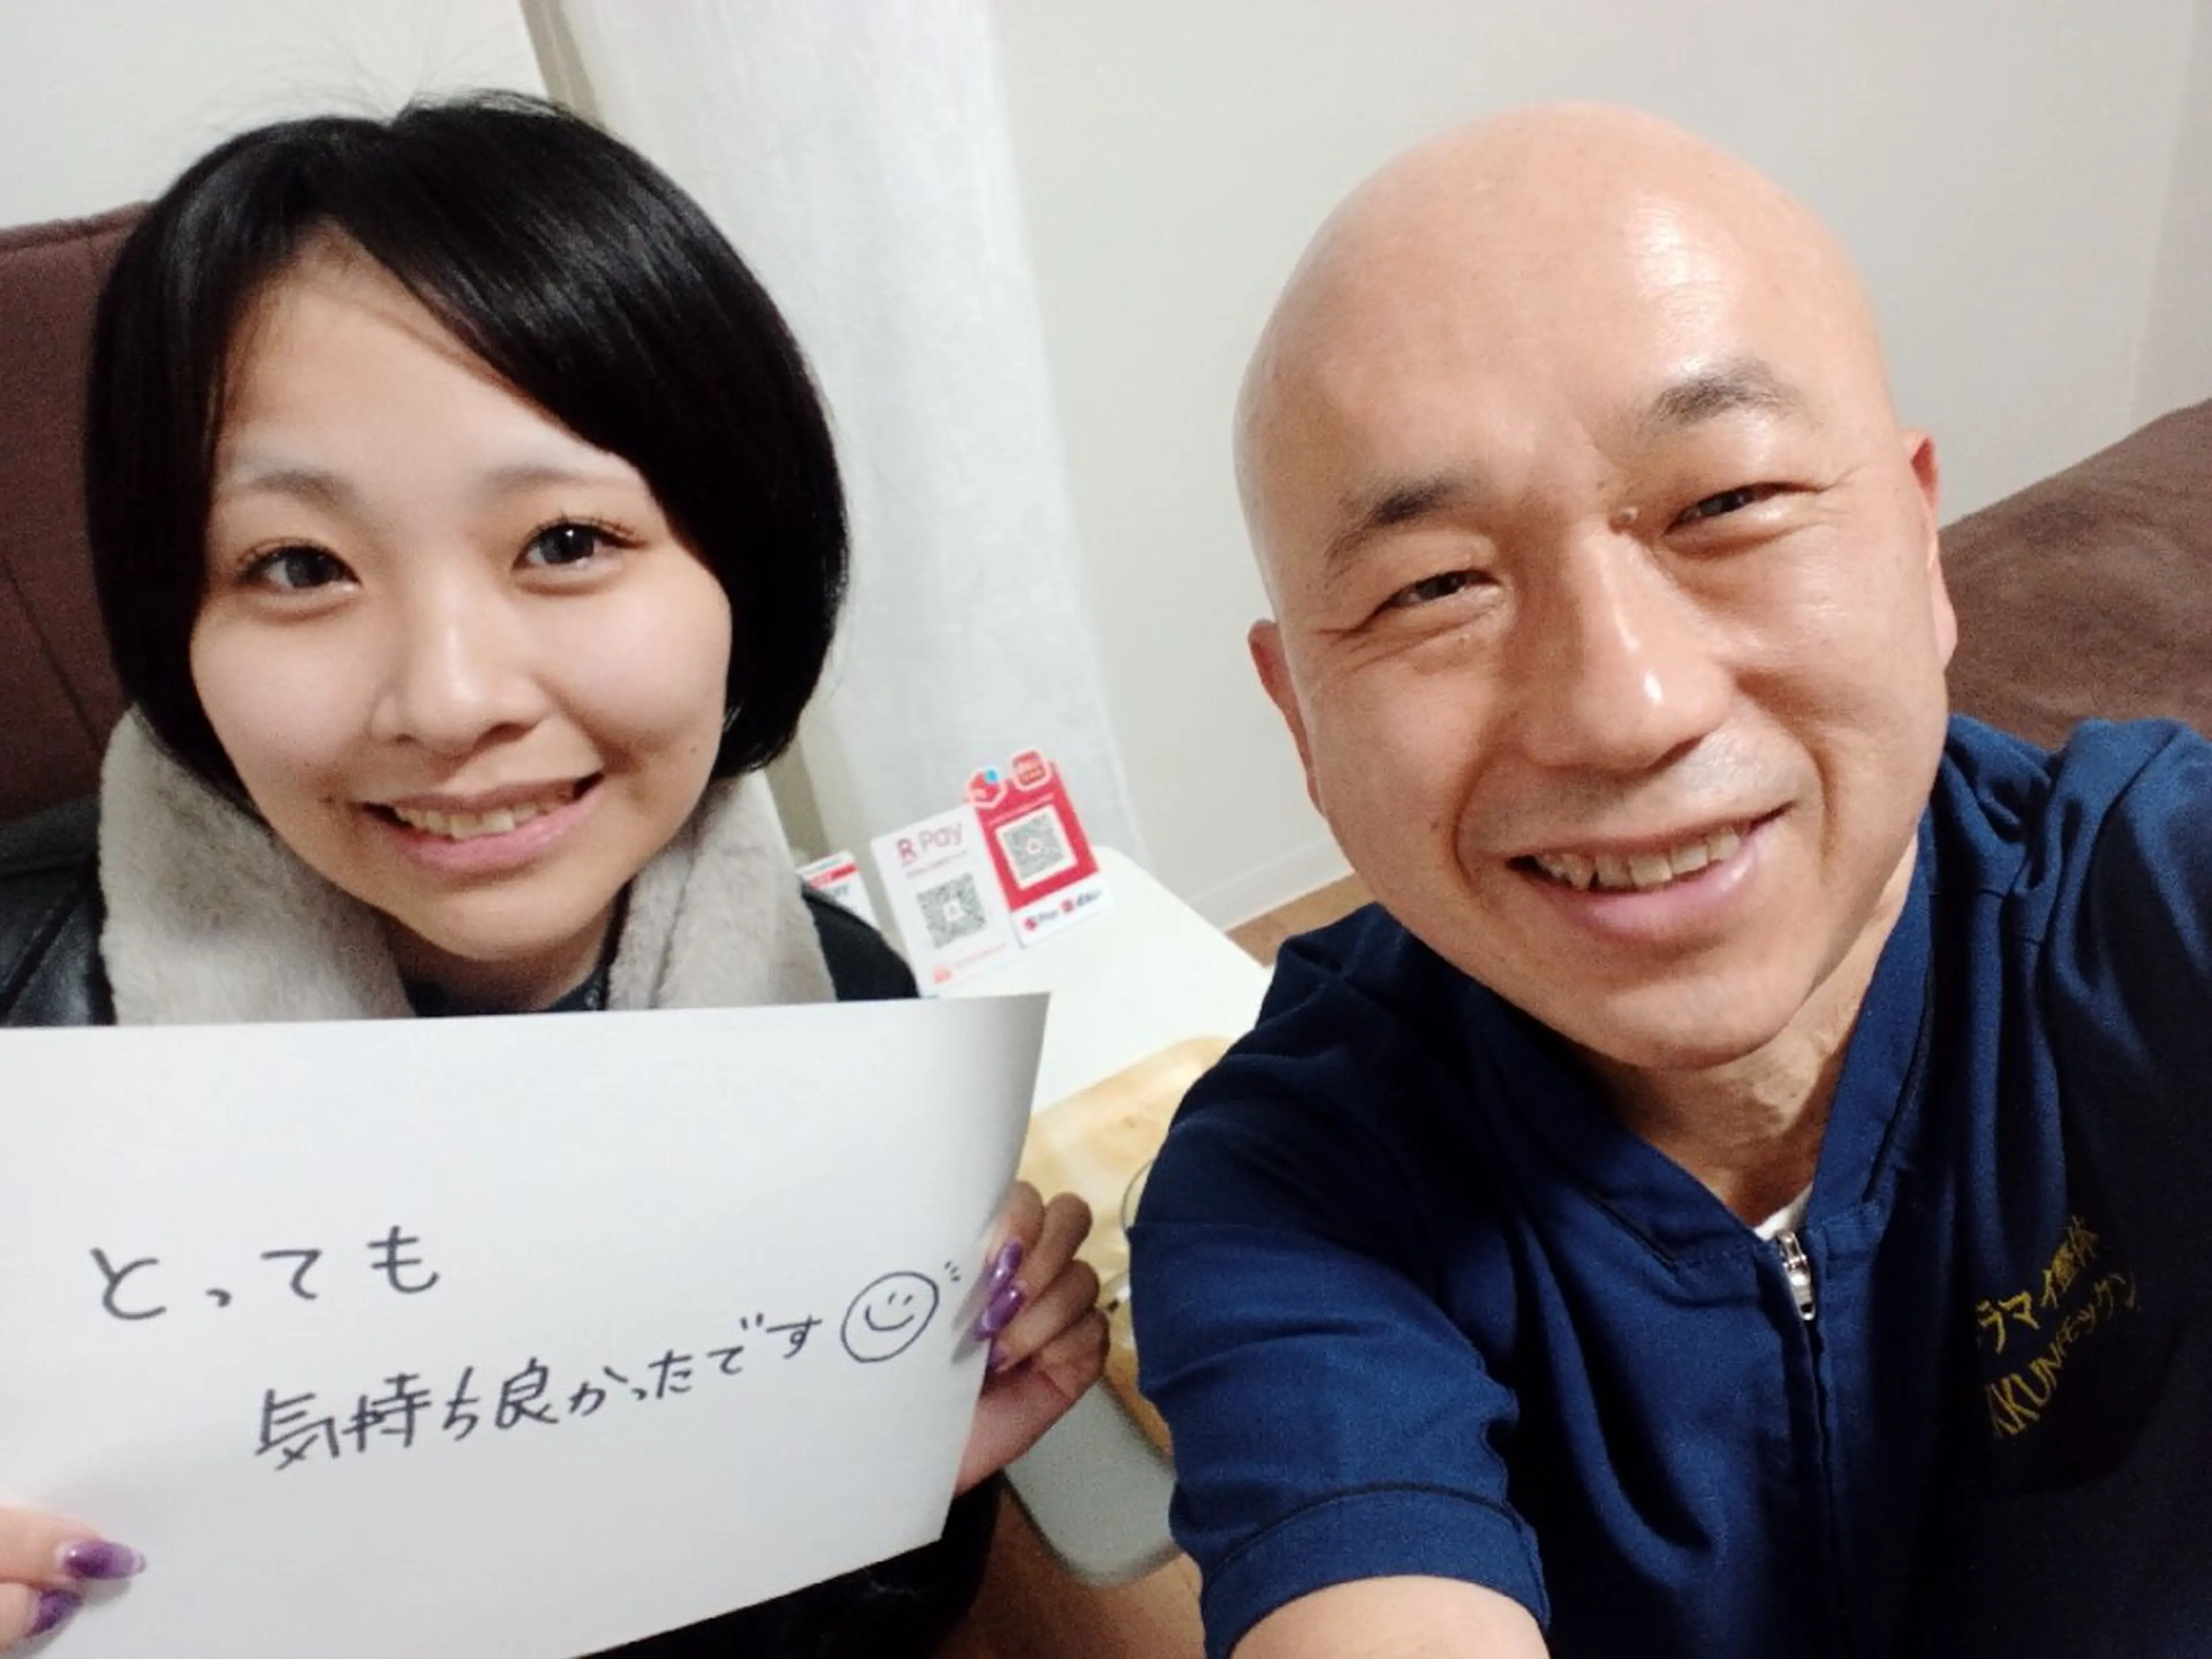 R Pay
とっても
気持ち良かったです
ラマイ整体
KKUN(モックン